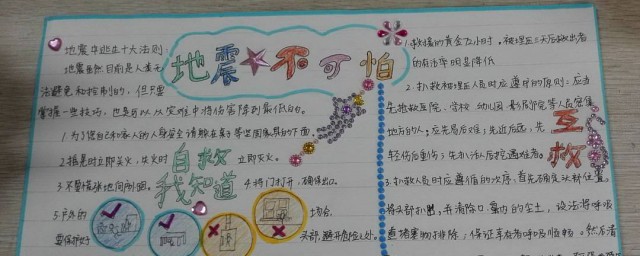 地震不可怕
地震中逃生十大法则:
地震虽然目前是人类无
法避免和控制的,但只要
掌握一些技巧,也是可以从灾难中将伤害降到最低的。
1.为了您自己和家人的人身安全请躲在桌子等坚固家具的下面
2.摇晃时立即关火,失火时
立即灭火。
3.不要慌张地向侧面。
4.将门打开,确保出口。
5.户外的
要保护好
头部,避开危险之处。
自救
我知道
1.救援的黄金72小时。被埋三天后救出者
的存活率明显降低
2.扒救被埋压人员时应遵守的原则:应当
先抢救医院、学校、幼儿园、影剧院等人员密集
地方的人;应先易后难;先近后远;先
轻伤后重伤;先扒活人后挖遇难者。
互救
3.扒救人员时应遵循的次序:首先确定头部位置。
将头部扒出,并清除口、鼻内的尘土,设法将呼吸
道堵塞物排除;保证幸存者呼吸顺畅。然后清